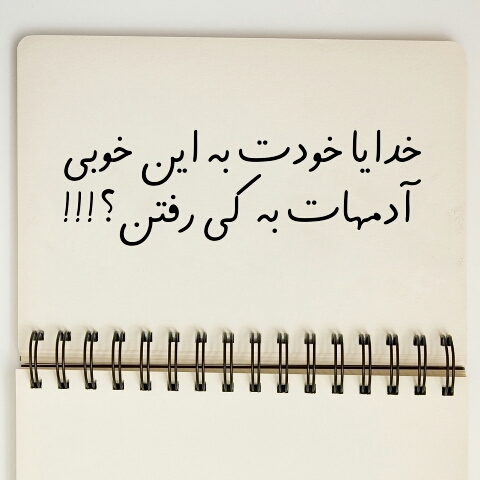 خدایا خودت به این خوبی
آدمهات به کی رفتن؟!!!